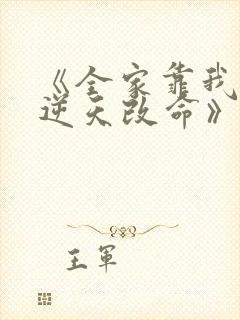 《全家靠我
逆天改命》
王軍